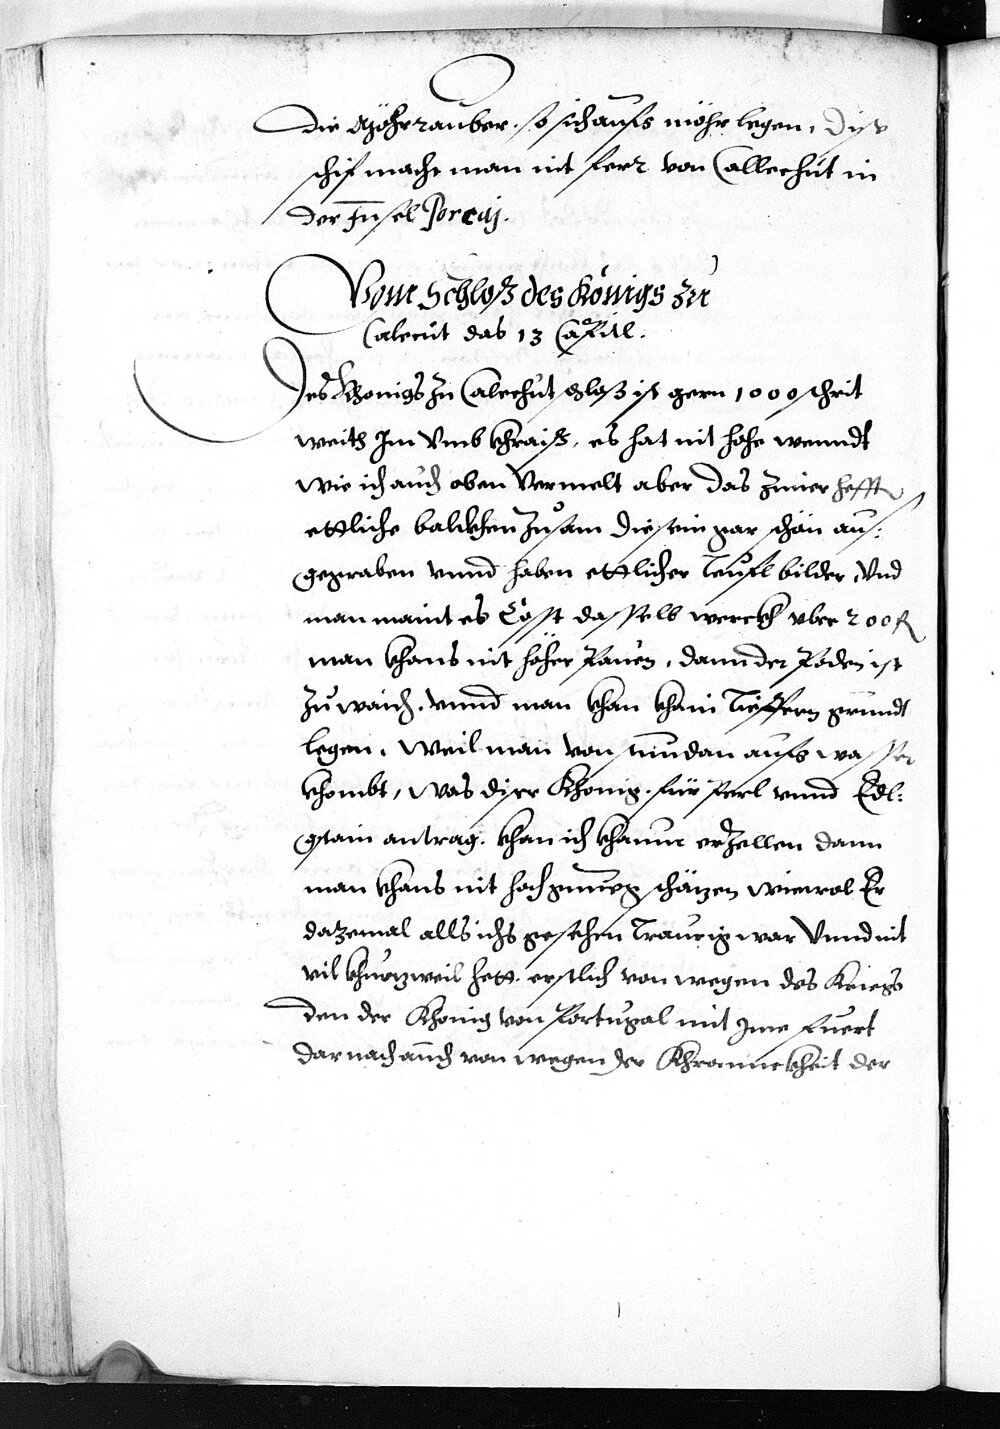 Die Möhrrauber. so sich aufs möhr legen, Dise
schif macht man nit ferr von Callechut in
der Insel Porcaj.
Vom Schloß des Königs zu
Calecut das 13 Capitl.
Des Khonigs zu Calechut schloß ist gern 1000 schrit
weith Im Umbkhraiß, es hat nit hohe wenndt
wie ich auch oben Vermelt aber das zimer hefft
ettliche balckhen zusam die sein gar schön aus:
gegraben vnnd haben ettlicher Teufl bilder, Und
man maint es Cosst dasselb werckh vber 200 fl
man khans nit höher Pauen, dann der Poden ist
zu waich. vnnd man khan khain Tieffern grundt
legen, Weil man von stundan aufs wasser
khombt, was diser Khonig. für Perl vnnd Edl:
gstain antrag. khan ich khaum erzellen dann
man khans nit hoch genueg schätzen wiewol Er
dazemal alls ichs gesehen Traurig war Vnnd nit
vil khurzweil hett. erstlich von wegen des Kriegs
den der Khonig von Portugal mit Ime fuert
darnach auch von wegen der Khrannckheit der